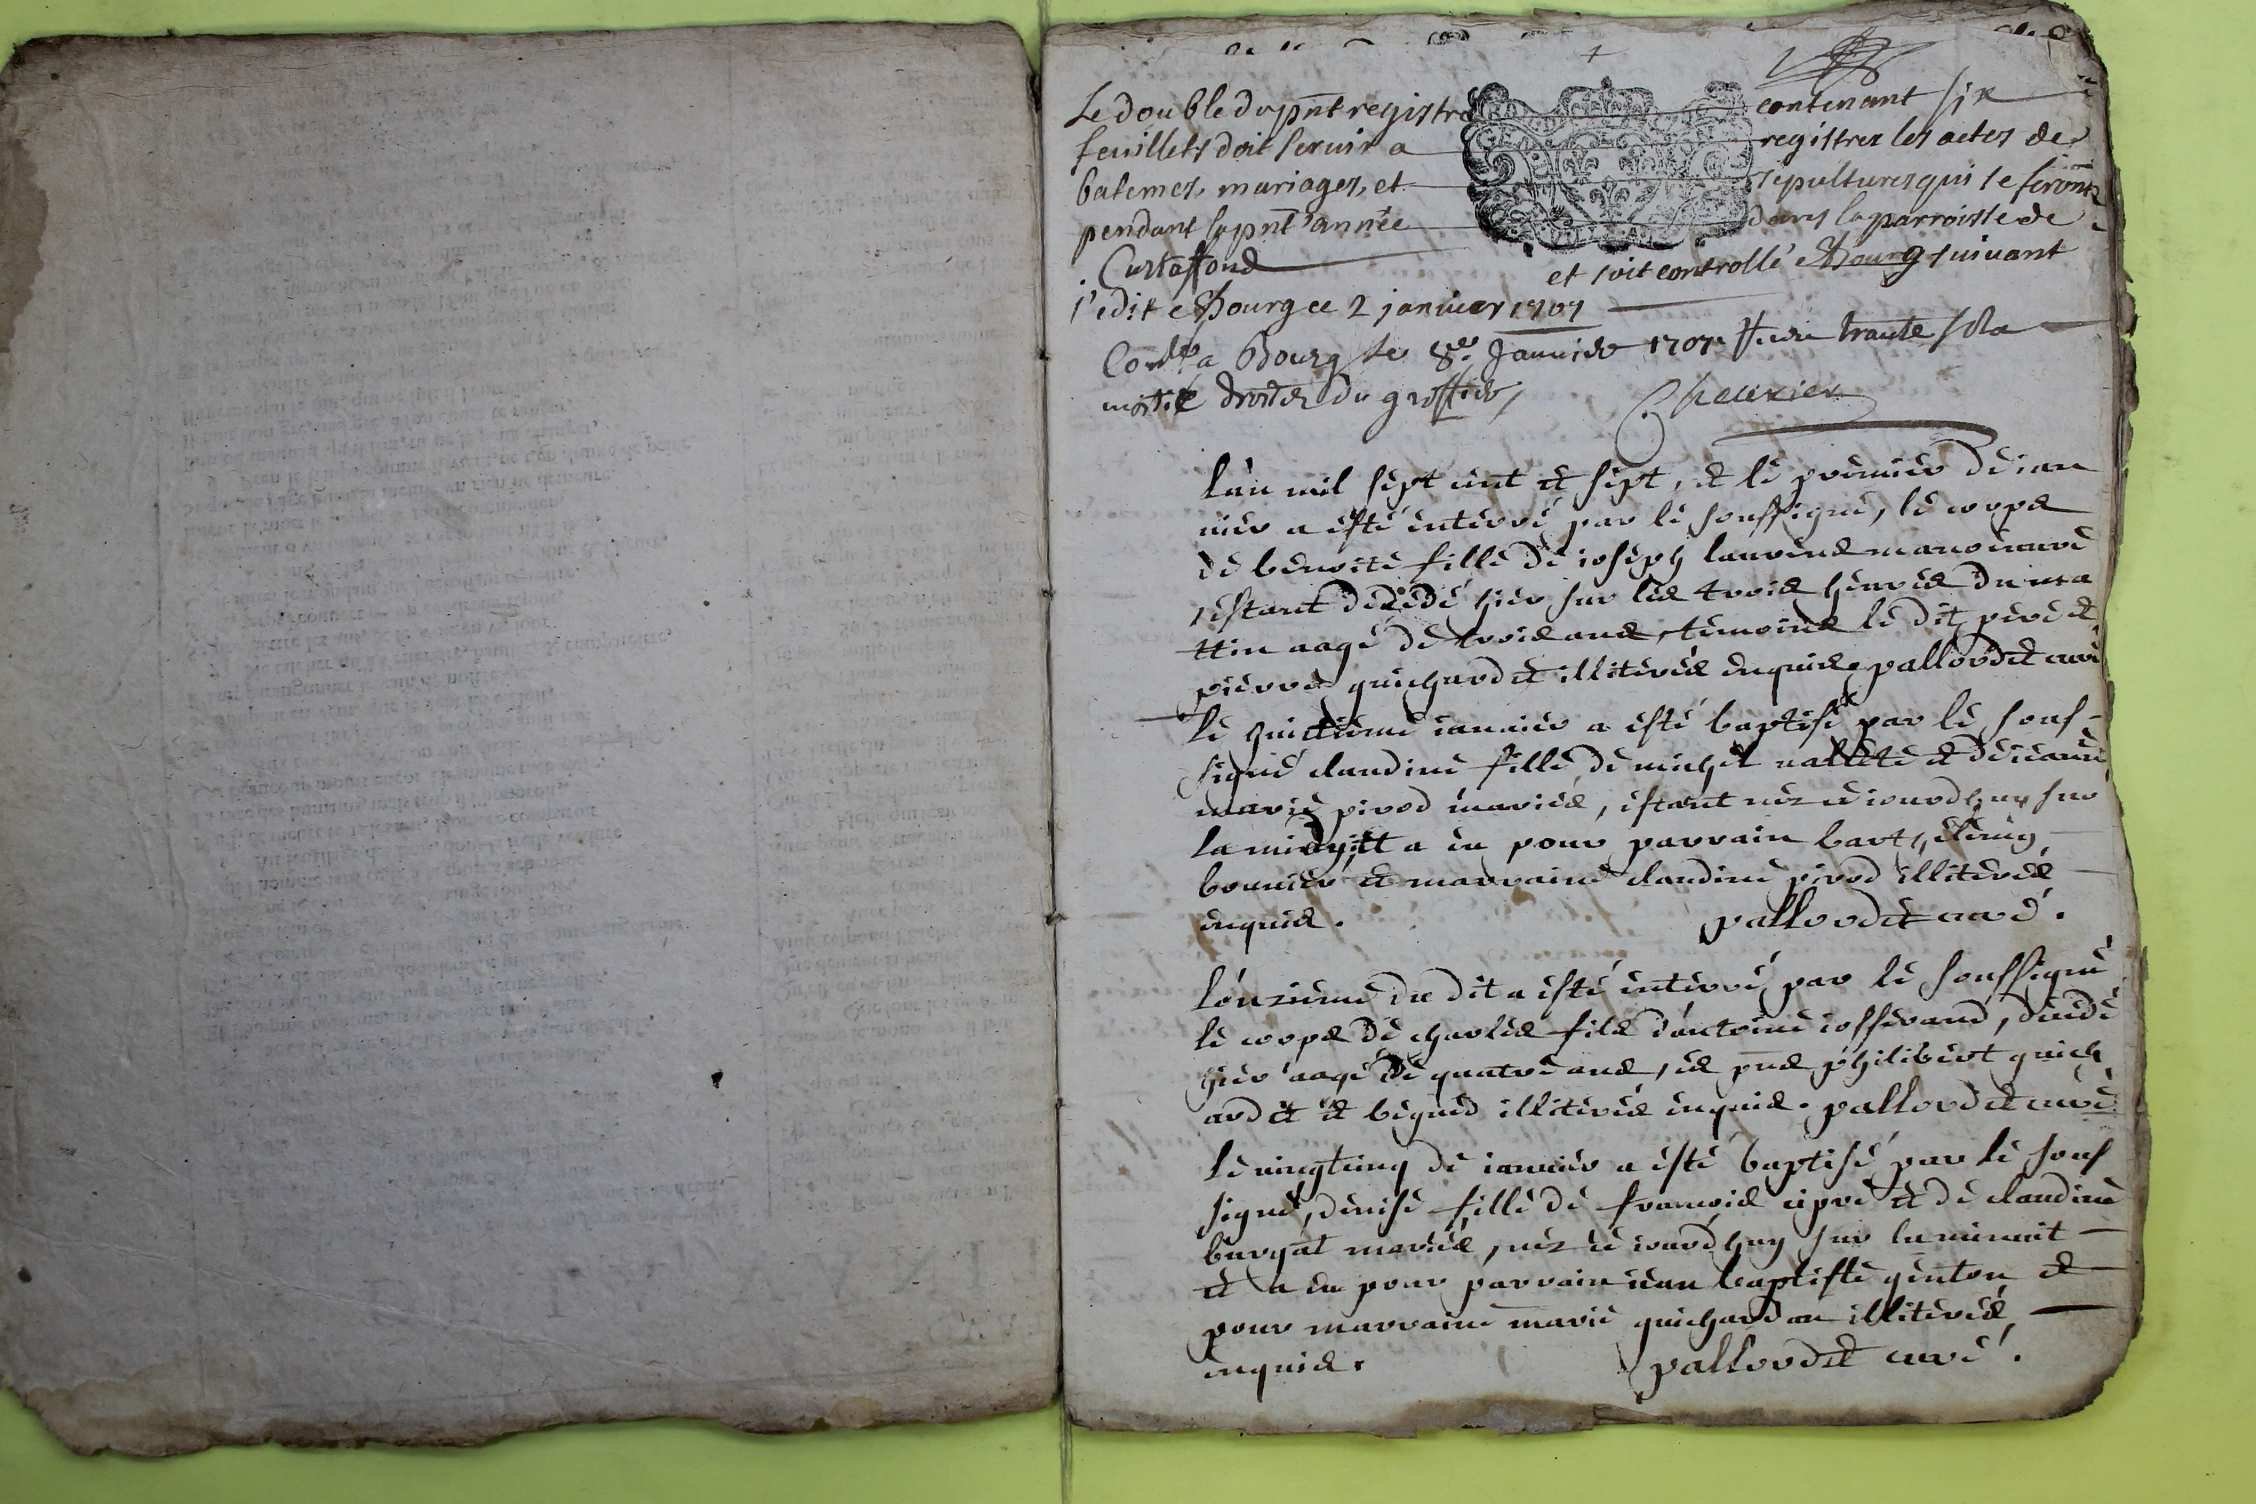 Le double du pnt registre contenant six
feuillets doit servir a registrer les actes de
batemes, mariages, et sepultures qui se feront
pendant la pnt année dans la parroisse de
Curtaffond et soit controllé a Bourg suivant
l'edit a Bourg ce 2 janvier 1707
a Bourg le 8e Januier 1707 trante sols
moitié droits du greffier,
l'an mil sept cent et sept, et le premier de ian
uier a esté enterré par le soussigné, le corps
de benoite fille de ioseph laurens manoeuure
estant décédé hier sur les trois heures du ma
ttin aagé de trois ans, temoins le dit pere et
pierre guichardet illiterés enquis. pallordet curé
le huictieme ianuier a esté baptisé par le sous-
signé claudine fille de michel et de ieanne
marie pirod mariés, estant néz ce iourdhuy sur
la midy, et a eu pour parrain barthelemy
bouuier et marraine claudine pirod illiterés
enquis. pallordet curé.
l'onzieme du dit a esté enterré par le soussigné
le corps de charles fils d'antoine iosserand, décédé
hier aagé de quatre ans, és pns philibert guich
ardet et béguéd illiterés enquis. pallordet curé
le vingtcinq de ianuier a esté baptisé par le sous
signé, denise fille de francois cipre et de claudine
burgat mariés, néz ce iourdhuy sur la minuit
et a eu pour parrain iean baptiste genton et
pour marraine marie guichardan illiterés,
enquis. pallordet curé.